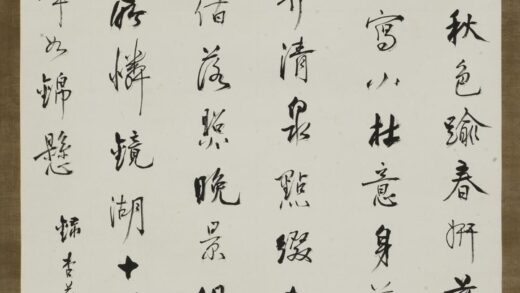 秋色踰春妍
寫小杜意身
清泉點綴
借落照晚景
憐鏡湖十
如錦懸
錄李